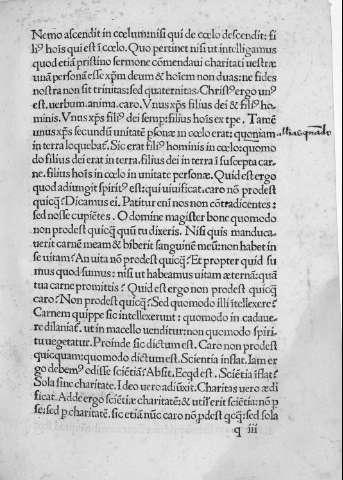 Nemo ascendit in cœlum: nisi qui de cœlo descendit: fi
liꝰ hoīs qui est ī cœlo. Quo pertinet nisi ut intelligamus
quod etiā pristino sermone cōmendaui charitati uestræ
unā personā esse xp̄m deum & hoīem non duas: ne fides
nostra non sit trinitas: sed quaternitas. Christꝰ ergo unꝰ
est. uerbum. anima. caro. Vnus xp̄s filius dei & filiꝰ ho
minis. Vnus xp̄s filiꝰ dei semp: filius hoīs ex tpe. Tamē
unus xp̄s secundū unitatē psonæ in cœlo erat: quoniam
in terra loquebat. Sic erat filiꝰ hominis in cœlo: quomo
do filius dei erat in terra. filius dei in terra ī suscepta car
ne. filius hoīs in cœlo in unitate personæ. Quid est ergo
quod adiungit spiritꝰ est: qui uiuificat. caro nō prodest
quicq̄? Dicamus ei. Patitur enī nos non cōtradicentes:
sed nosse cupiētes. O domine magister bone quomodo
non prodest quicq̄ quū tu dixeris. Nisi quis manduca
uerit carnē meam & biberit sanguinē meū: non habet in
se uitam? An uita nō prodest quicq̄? Et propter quid su
mus quod sumus: nisi ut habeamus uitam æternā: quā
tua carne promittis? Quid est ergo non prodest quicq̄
caro? Non prodest quicq̄? Sed quomodo illi ītellexere?
Carnem quippe sic intellexerunt: quomodo in cadaue
re dilaniat. ut in macello uenditur: non quomodo spiri
tu uegetatur. Proinde sic dictum est. Caro non prodest
quicquam: quomodo dictum est. Scientia inflat. Iam er
go debemꝰ odisse sciētiā? Absit. Ecqd est. Sciētia īflat?
Sola sine charitate. Ideo uero adiūxit. Charitas uero ædi
ficat. Adde ergo sciētiæ charitatē: & utilꝰ erit sciētia: nō p
se: sed p charitatē. sic etiā nūc caro nō pdest qcq̄: sed sola
q iii